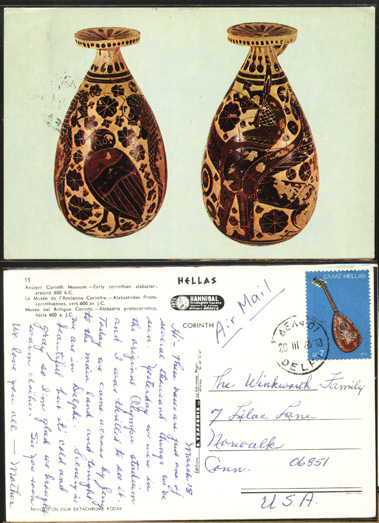 15
Ancient Corinth Museum.—Early corinthian alabaster;
around 600 b.C.
Le Musée de l'Ancienne Corinthe.—Alabastrides Proto-
corinthiennes, vers 600 av. J.C.
Museo del Antiguo Corinto.—Alabastro protocorintico,
hacia 600 a. J.C.
HELLAS
HANNIBAL
CORINTH
Air Mail
ΕΛΛΑΣ HELLAS
ΔΕΛΦΟΙ
20 III
DELFI
March 18
Hi - These vases are just one of
several thousand things we've
seen. Yesterday we were in
the original Olympic stadium
and I was thrilled to see it.
Today we came across by ferry
to the main land and tonight
we are in Delphi. Scenery is
beautiful but its cold and
gray so I'm glad we brought
warm clothes. See you soon
We love you all — Mother
The Winkworth Family
7 Lilac Lane
Norwalk
Conn. 06851
U.S.A.
PRINTED ON FILM EKTACHROME KODAK